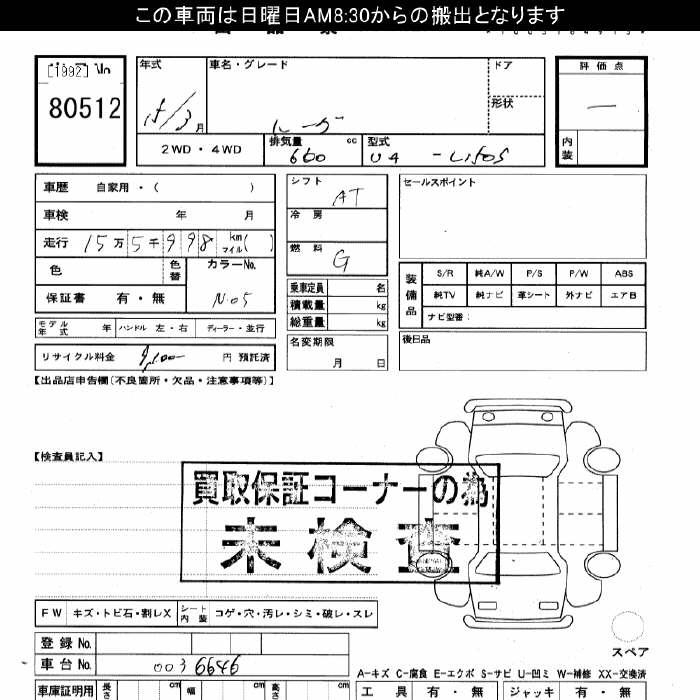 この車両は日曜日AM8:30からの搬出となります
[1992] No
80512
年式
車名・グレード
ドア
形状
15/3月
2WD・4WD
排気量 660 cc
型式
評価点
内装
車歴 自家用・( )
車検 年 月
走行 15万5千998 km マイル( )
色
色替
カラーNo.
N-05
保証書 有・無
モデル年式 年 ハンドル 左・右 ディーラー・並行
リサイクル料金 円 預託済
シフト AT
冷房
燃料 G
乗車定員 名
積載量 kg
総重量 kg
名変期限
月 日
セールスポイント
装備品
S/R 純A/W P/S P/W ABS
純TV 純ナビ 革シート 外ナビ エアB
ナビ型番:
後日品
【出品店申告欄(不良箇所・欠品・注意事項等)】
【検査員記入】
買取保証コーナーの為
未検査
FW キズ・トビ石・割レX シート内装 コゲ・穴・汚レ・シミ・破レ・スレ
スペア
登録No.
車台No. 0036646
A-キズ C-腐食 E-エクボ S-サビ U-凹ミ W-補修 XX-交換済
車庫証明用 長さ cm 幅 cm 高さ cm
工具 有・無 ジャッキ 有・無